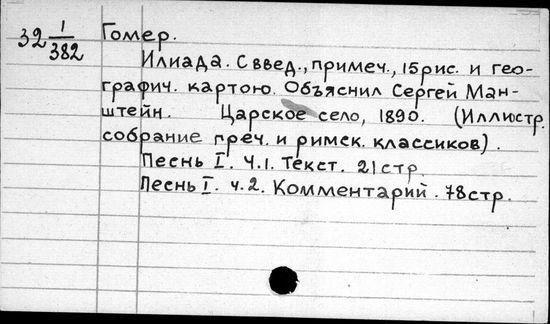 32 1/382 Гомер.
Илиада. С введ., примеч., 15 рис. и гео-
графич. картою. Объяснил Сергей Ман-
штейн. Царское село, 1890. (Иллюстр.
собрание греч. и римск. классиков).
Песнь I. Ч.1. Текст. 21 стр.
Песнь I. ч.2. Комментарий. 78 стр.